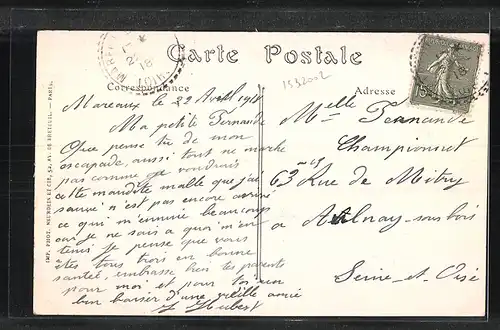 Carte Postale
Correspondance
Adresse
1532002
Mareaux le 22 Avril 1918
Ma petite Fernande
Que pense tu de mon
escapade, aussi tout ne marche
pas comme je voudrais
cette maudite malle que j'ai
sauvé n'est pas encore arrivé
ce qui m'ennuie beaucoup
car je ne sais a quoi m'en
tenir je pense que vous
êtes tous trois en bonne
santé, embrasse bien tes parents
pour moi et pour toi un
bon baiser d'une vieille amie
Hubert
Melle Fernande
Championnet
63 Rue de Mitry
a Aulnay-sous-bois
Seine-et-Oise
IMP. PHOT. NEURDEIN ET CIE, 52, AV. DE BRETEUIL. — PARIS.
15